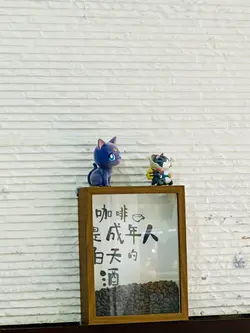 咖啡
是成年人
白天的
酒